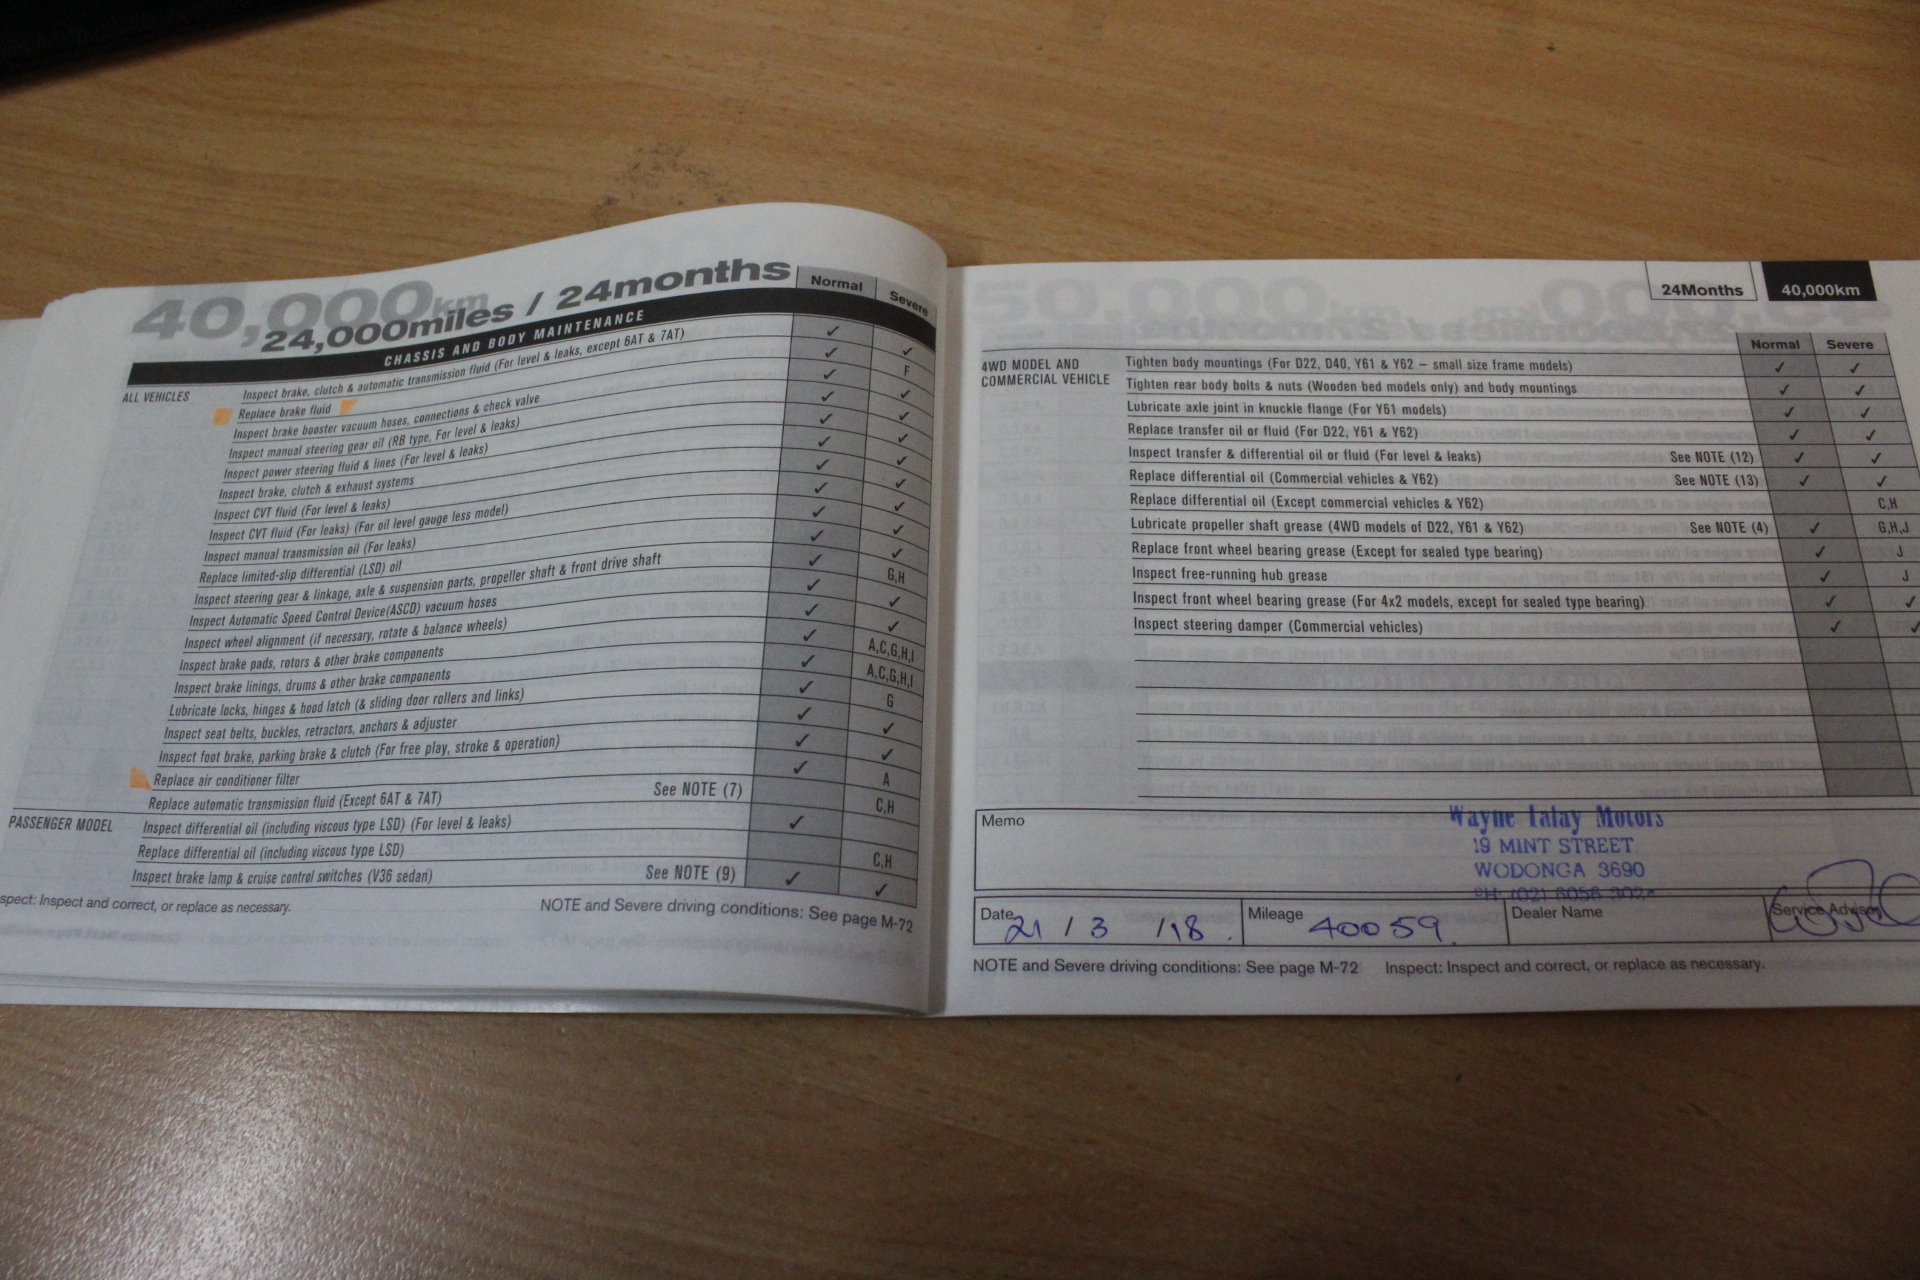 40,000km
24,000miles / 24months
Normal Severe
CHASSIS AND BODY MAINTENANCE
ALL VEHICLES
Inspect brake, clutch & automatic transmission fluid (For level & leaks, except 6AT & 7AT) ✓ ✓
Replace brake fluid ✓ F
Inspect brake booster vacuum hoses, connections & check valve ✓ ✓
Inspect manual steering gear oil (RB type, For level & leaks) ✓ ✓
Inspect power steering fluid & lines (For level & leaks) ✓ ✓
Inspect brake, clutch & exhaust systems ✓ ✓
Inspect CVT fluid (For level & leaks) ✓ ✓
Inspect CVT fluid (For leaks) (For oil level gauge less model) ✓ ✓
Inspect manual transmission oil (For leaks) ✓ ✓
Replace limited-slip differential (LSD) oil ✓ ✓
Inspect steering gear & linkage, axle & suspension parts, propeller shaft & front drive shaft ✓ G,H
Inspect Automatic Speed Control Device(ASCD) vacuum hoses ✓ ✓
Inspect wheel alignment (if necessary, rotate & balance wheels) ✓ ✓
Inspect brake pads, rotors & other brake components ✓ A,C,G,H,I
Inspect brake linings, drums & other brake components ✓ A,C,G,H,I
Lubricate locks, hinges & hood latch (& sliding door rollers and links) ✓ G
Inspect seat belts, buckles, retractors, anchors & adjuster ✓ ✓
Inspect foot brake, parking brake & clutch (For free play, stroke & operation) ✓ ✓
Replace air conditioner filter ✓ A
Replace automatic transmission fluid (Except 6AT & 7AT) See NOTE (7) C,H
PASSENGER MODEL
Inspect differential oil (including viscous type LSD) (For level & leaks) ✓
Replace differential oil (including viscous type LSD) C,H
Inspect brake lamp & cruise control switches (V36 sedan) See NOTE (9) ✓ ✓
spect: Inspect and correct, or replace as necessary. NOTE and Severe driving conditions: See page M-72
24Months 40,000km
Normal Severe
4WD MODEL AND
COMMERCIAL VEHICLE
Tighten body mountings (For D22, D40, Y61 & Y62 – small size frame models) ✓ ✓
Tighten rear body bolts & nuts (Wooden bed models only) and body mountings ✓ ✓
Lubricate axle joint in knuckle flange (For Y61 models) ✓ ✓
Replace transfer oil or fluid (For D22, Y61 & Y62) ✓ ✓
Inspect transfer & differential oil or fluid (For level & leaks) See NOTE (12) ✓ ✓
Replace differential oil (Commercial vehicles & Y62) See NOTE (13) ✓ ✓
Replace differential oil (Except commercial vehicles & Y62) C,H
Lubricate propeller shaft grease (4WD models of D22, Y61 & Y62) See NOTE (4) ✓ G,H,J
Replace front wheel bearing grease (Except for sealed type bearing) ✓ J
Inspect free-running hub grease ✓ J
Inspect front wheel bearing grease (For 4x2 models, except for sealed type bearing) ✓ ✓
Inspect steering damper (Commercial vehicles) ✓ ✓
Memo
Wayne Talay Motors
19 MINT STREET
WODONGA 3690
PH: (02) 6056
Date 21 / 3 /18. Mileage 40059. Dealer Name Service Advisor
NOTE and Severe driving conditions: See page M-72 Inspect: Inspect and correct, or replace as necessary.